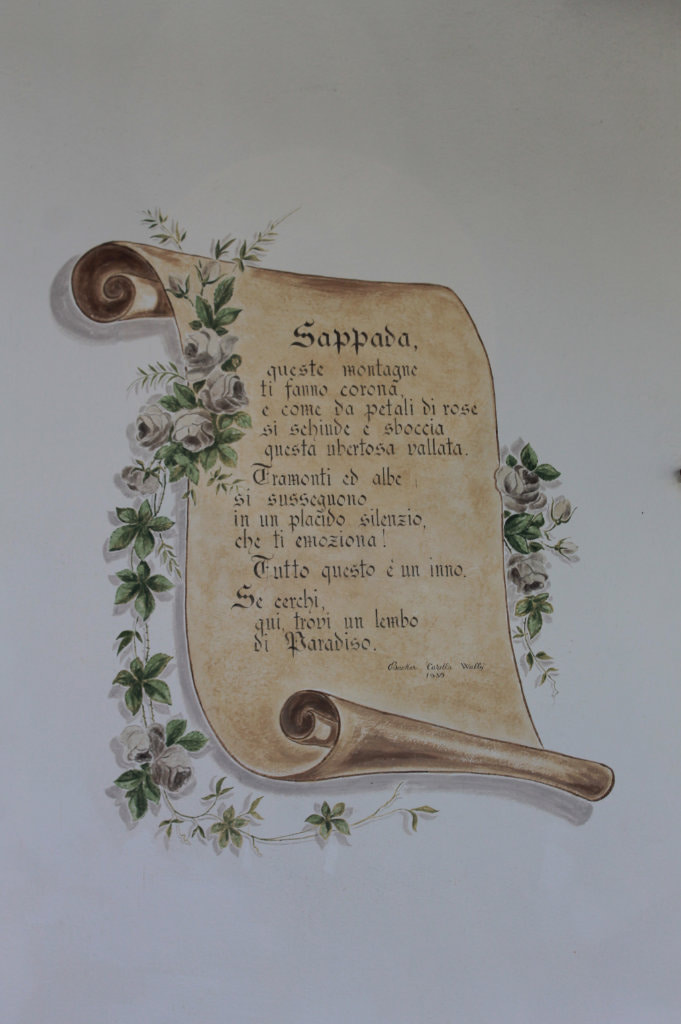 Sappada,
queste montagne
ti fanno corona,
e come da petali di rose
si schiude e sboccia
questa ubertosa vallata.
Tramonti ed albe
si susseguono
in un placido silenzio,
che ti emoziona!
Tutto questo è un inno.
Se cerchi,
qui, trovi un lembo
di Paradiso.